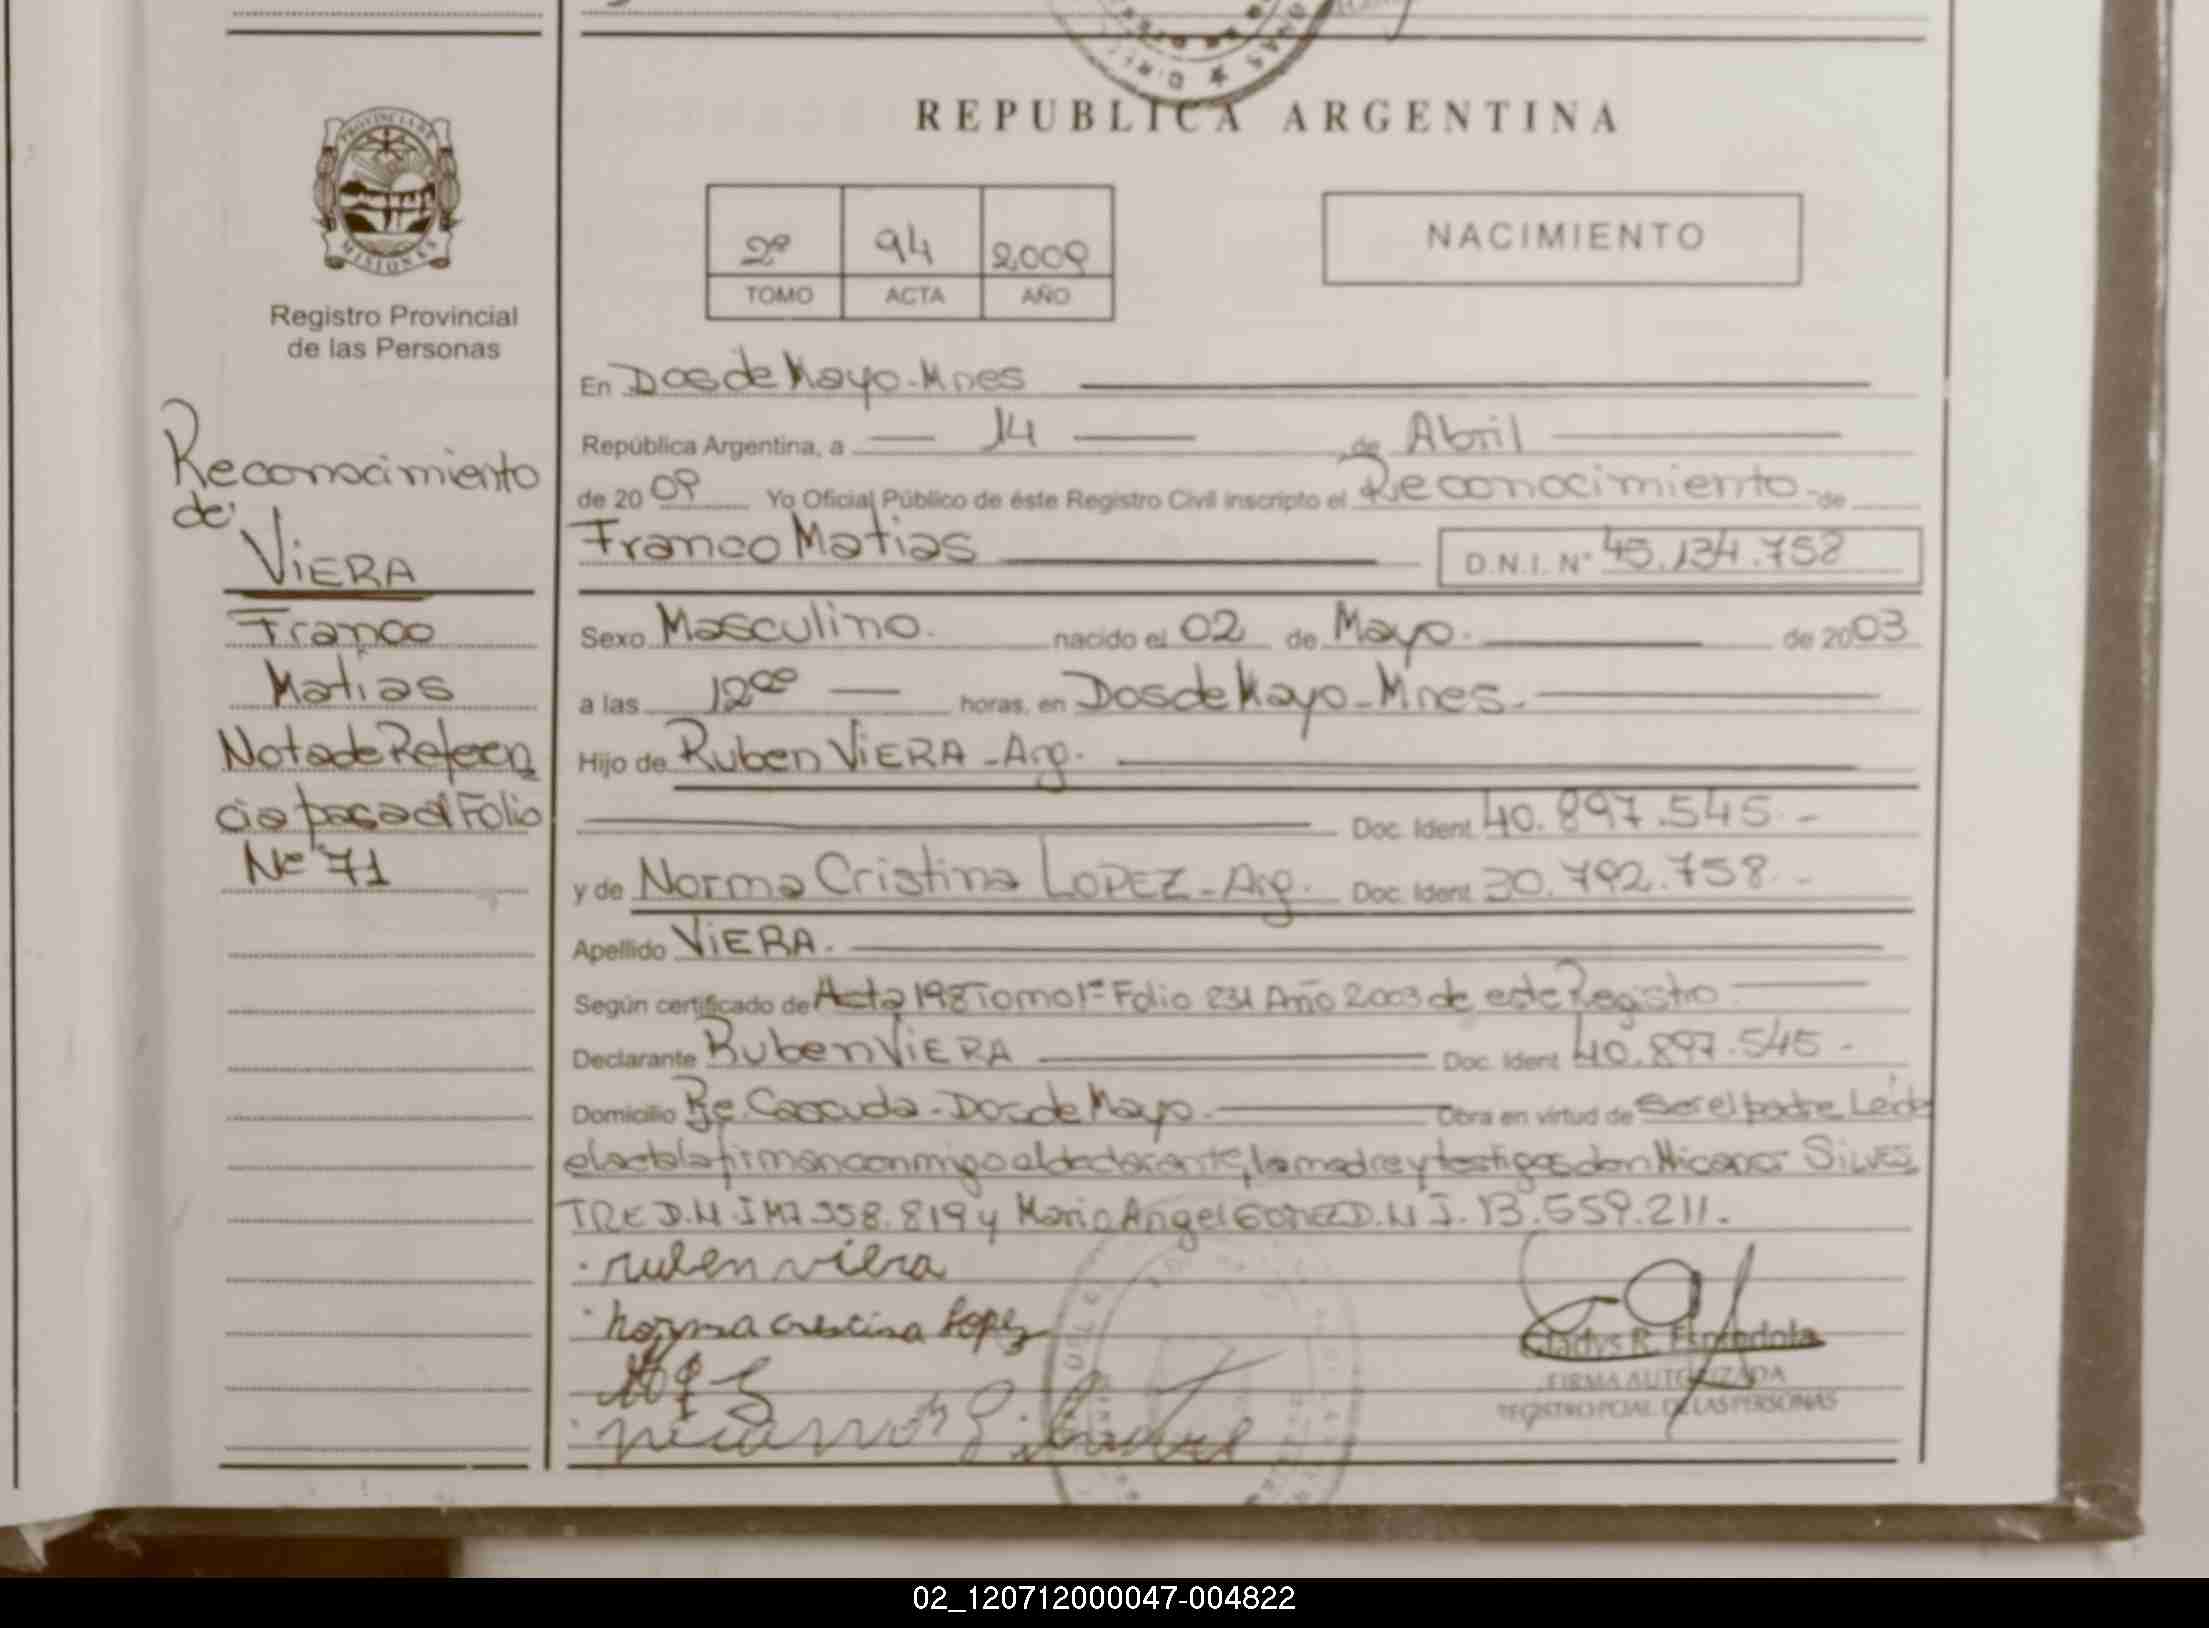 REPUBLICA ARGENTINA
PROVINCIA DE
MISIONES
Registro Provincial
de las Personas
2º 94 2009
TOMO ACTA AÑO
NACIMIENTO
Reconocimiento
de:
VIERA
Franco
Matias
Nota de Referen
cia pasa al Folio
Nº 71
En Dos de Mayo - Mnes
República Argentina, a 14 de Abril
de 2009 Yo Oficial Público de éste Registro Civil inscripto el Reconocimiento de
Franco Matias D.N.I. Nº 45.134.758
Sexo Masculino. nacido el 02 de Mayo. de 2003
a las 12 00 horas, en Dos de Mayo - Mnes.
Hijo de Ruben VIERA - Arg.
Doc. Ident. 40.897.545 -
y de Norma Cristina LOPEZ - Arg. Doc. Ident. 30.792.758 -
Apellido VIERA.
Según certificado de Acta 198 Tomo 1º Folio 231 Año 2003 de este Registro
Declarante Ruben VIERA Doc. Ident. 40.897.545 -
Domicilio Dos de Mayo. Obra en virtud de ser el padre Leida
el acta la firman conmigo el declarante, la madre y testigos don Nicanor SILVES
TRE D.N.I M7.558.819 y Mario Angel GOMEZ D.N.I. 13.559.211.
ruben viera
norma crescina Lopez
Gladys R.
FIRMA AUTORIZADA
REGISTRO PCIAL. DE LAS PERSONAS
02_120712000047-004822